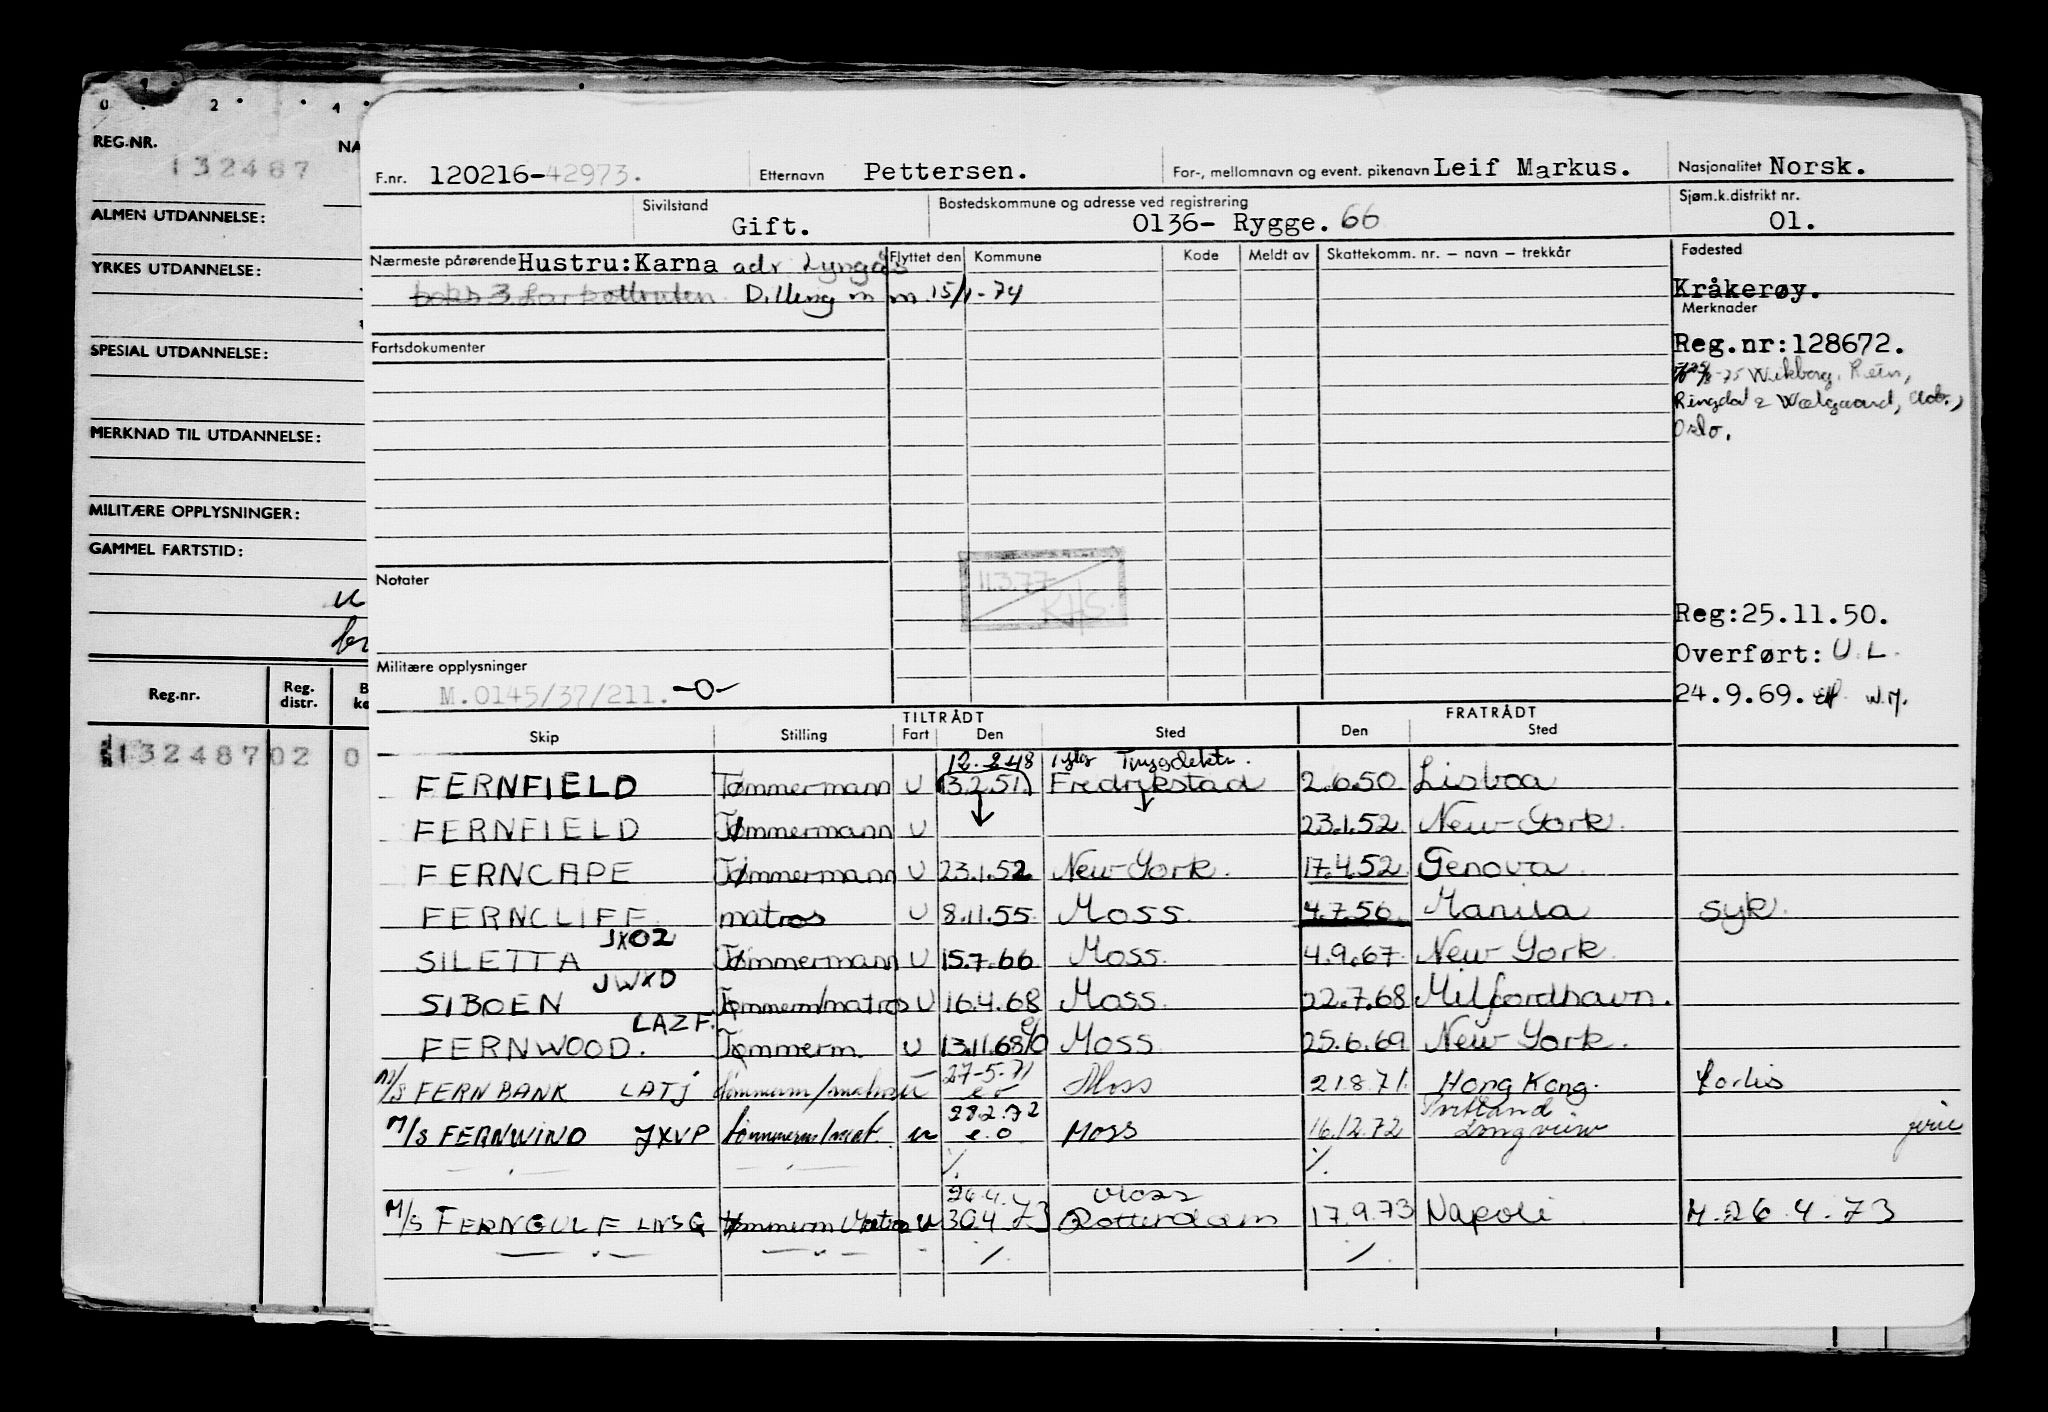 0 2 4
REG.NR. NA
132487
ALMEN UTDANNELSE:
YRKES UTDANNELSE:
SPESIAL UTDANNELSE:
MERKNAD TIL UTDANNELSE:
MILITÆRE OPPLYSNINGER:
GAMMEL FARTSTID:
Reg.nr. Reg. distr.
132487 02 0
F.nr. 120216-42973. Etternavn Pettersen. For-, mellomnavn og event. pikenavn Leif Markus. Nasjonalitet Norsk.
Sivilstand Gift. Bostedskommune og adresse ved registrering 0136- Rygge. 66 Sjøm.k.distrikt nr. 01.
Nærmeste pårørende Hustru:Karna adr Lyngås Flyttet den Kommune Kode Meldt av Skattekomm. nr. – navn – trekkår Fødested
boks 3 Dilling 15/1-74 Kråkerøy.
Merknader
Fartsdokumenter Reg.nr:128672.
-75 Wikborg, Rein,
Ringdal & Wælgaard, adv.,
Oslo.
11.3.77
KHS.
Notater
Reg:25.11.50.
Overført: U.L.
Militære opplysninger
M.0145/37/211. -0- 24.9.69. W.M.
TILTRÅDT FRATRÅDT
Skip Stilling Fart Den Sted Den Sted
12.2.48 Trygdektr.
FERNFIELD Tømmermann U 13.2.51. Fredrikstad 2.6.50 Lisboa
FERNFIELD Tømmermann U 23.1.52 New York.
FERNCAPE Tømmermann U 23.1.52 New York. 17.4.52 Genova.
FERNCLIFF matros U 8.11.55. Moss. 4.7.56 Manila syk.
JXOZ
SILETTA Tømmermann U 15.7.66 Moss. 4.9.67 New York.
JWXD
SIBOEN Tømmerm/matros U 16.4.68 Moss. 22.7.68 Milfordhavn.
LAZF.
FERNWOOD. Tømmerm. U 13.11.68 e/o Moss. 25.6.69 New York.
27-5.71
M/S FERNBANK LATJ tømmerm/matros u e o Moss 21.8.71. Hong Kong. forlis
28.2.72 Portland
M/S FERNWIND JXVP tømmerm/mat. u e.o Moss 16.12.72 Longview ferie
— . — — . — ./. ./.
26.4.73 Moss
M/S FERNGULF LNSG tømmerm/Matros u 30.4.73 Rotterdam 17.9.73 Napoli M.26.4.73
— . — — . — ./. ./.